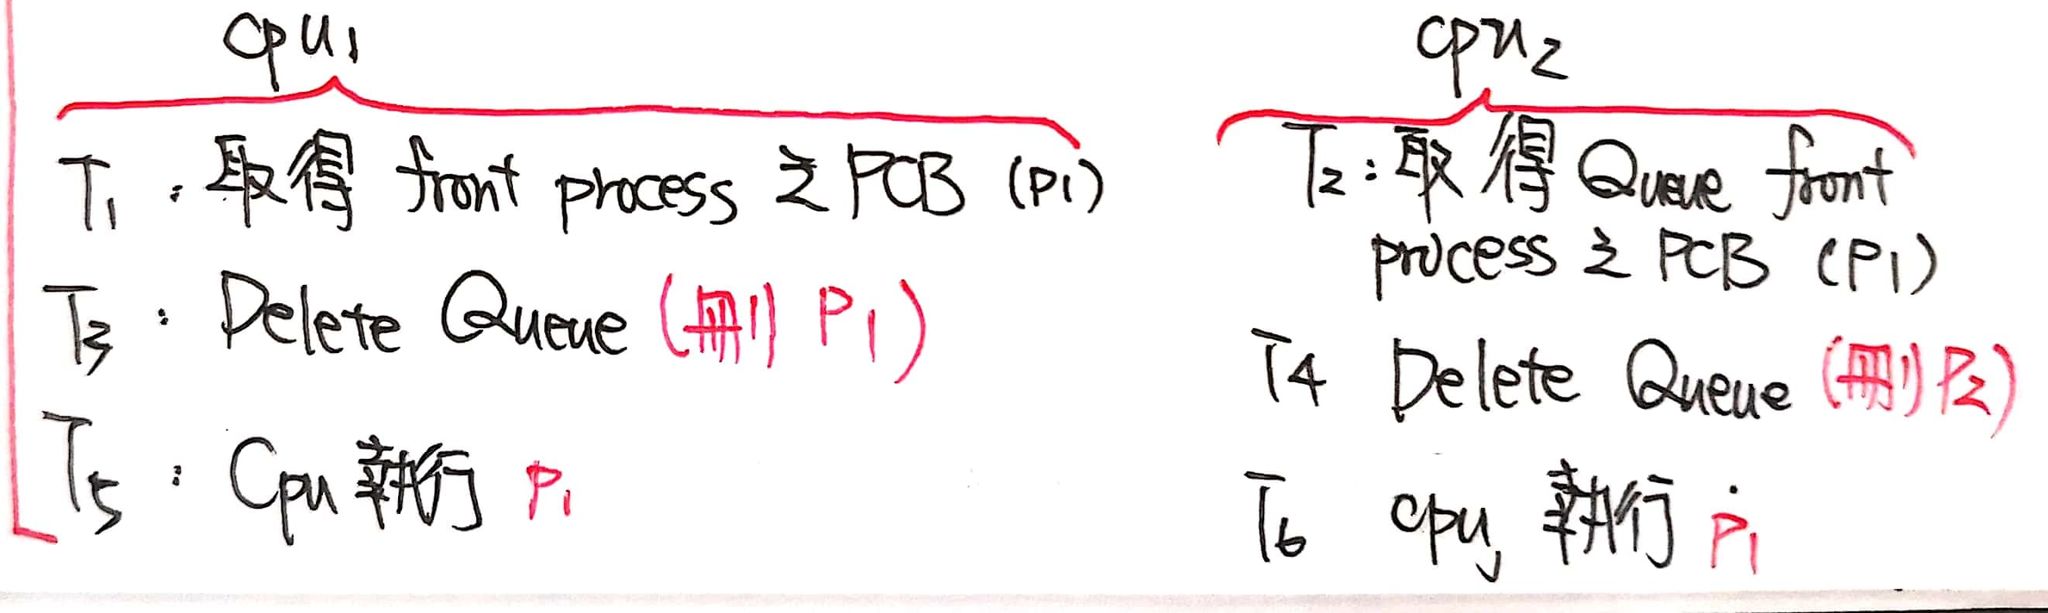 cpu1
T1：取得 front process 之 PCB (P1)
T3：Delete Queue (刪 P1)
T5：Cpu 執行 P1
cpu2
T2：取得 Queue front
process 之 PCB (P1)
T4 Delete Queue (刪 P2)
T6 cpuj 執行 P1